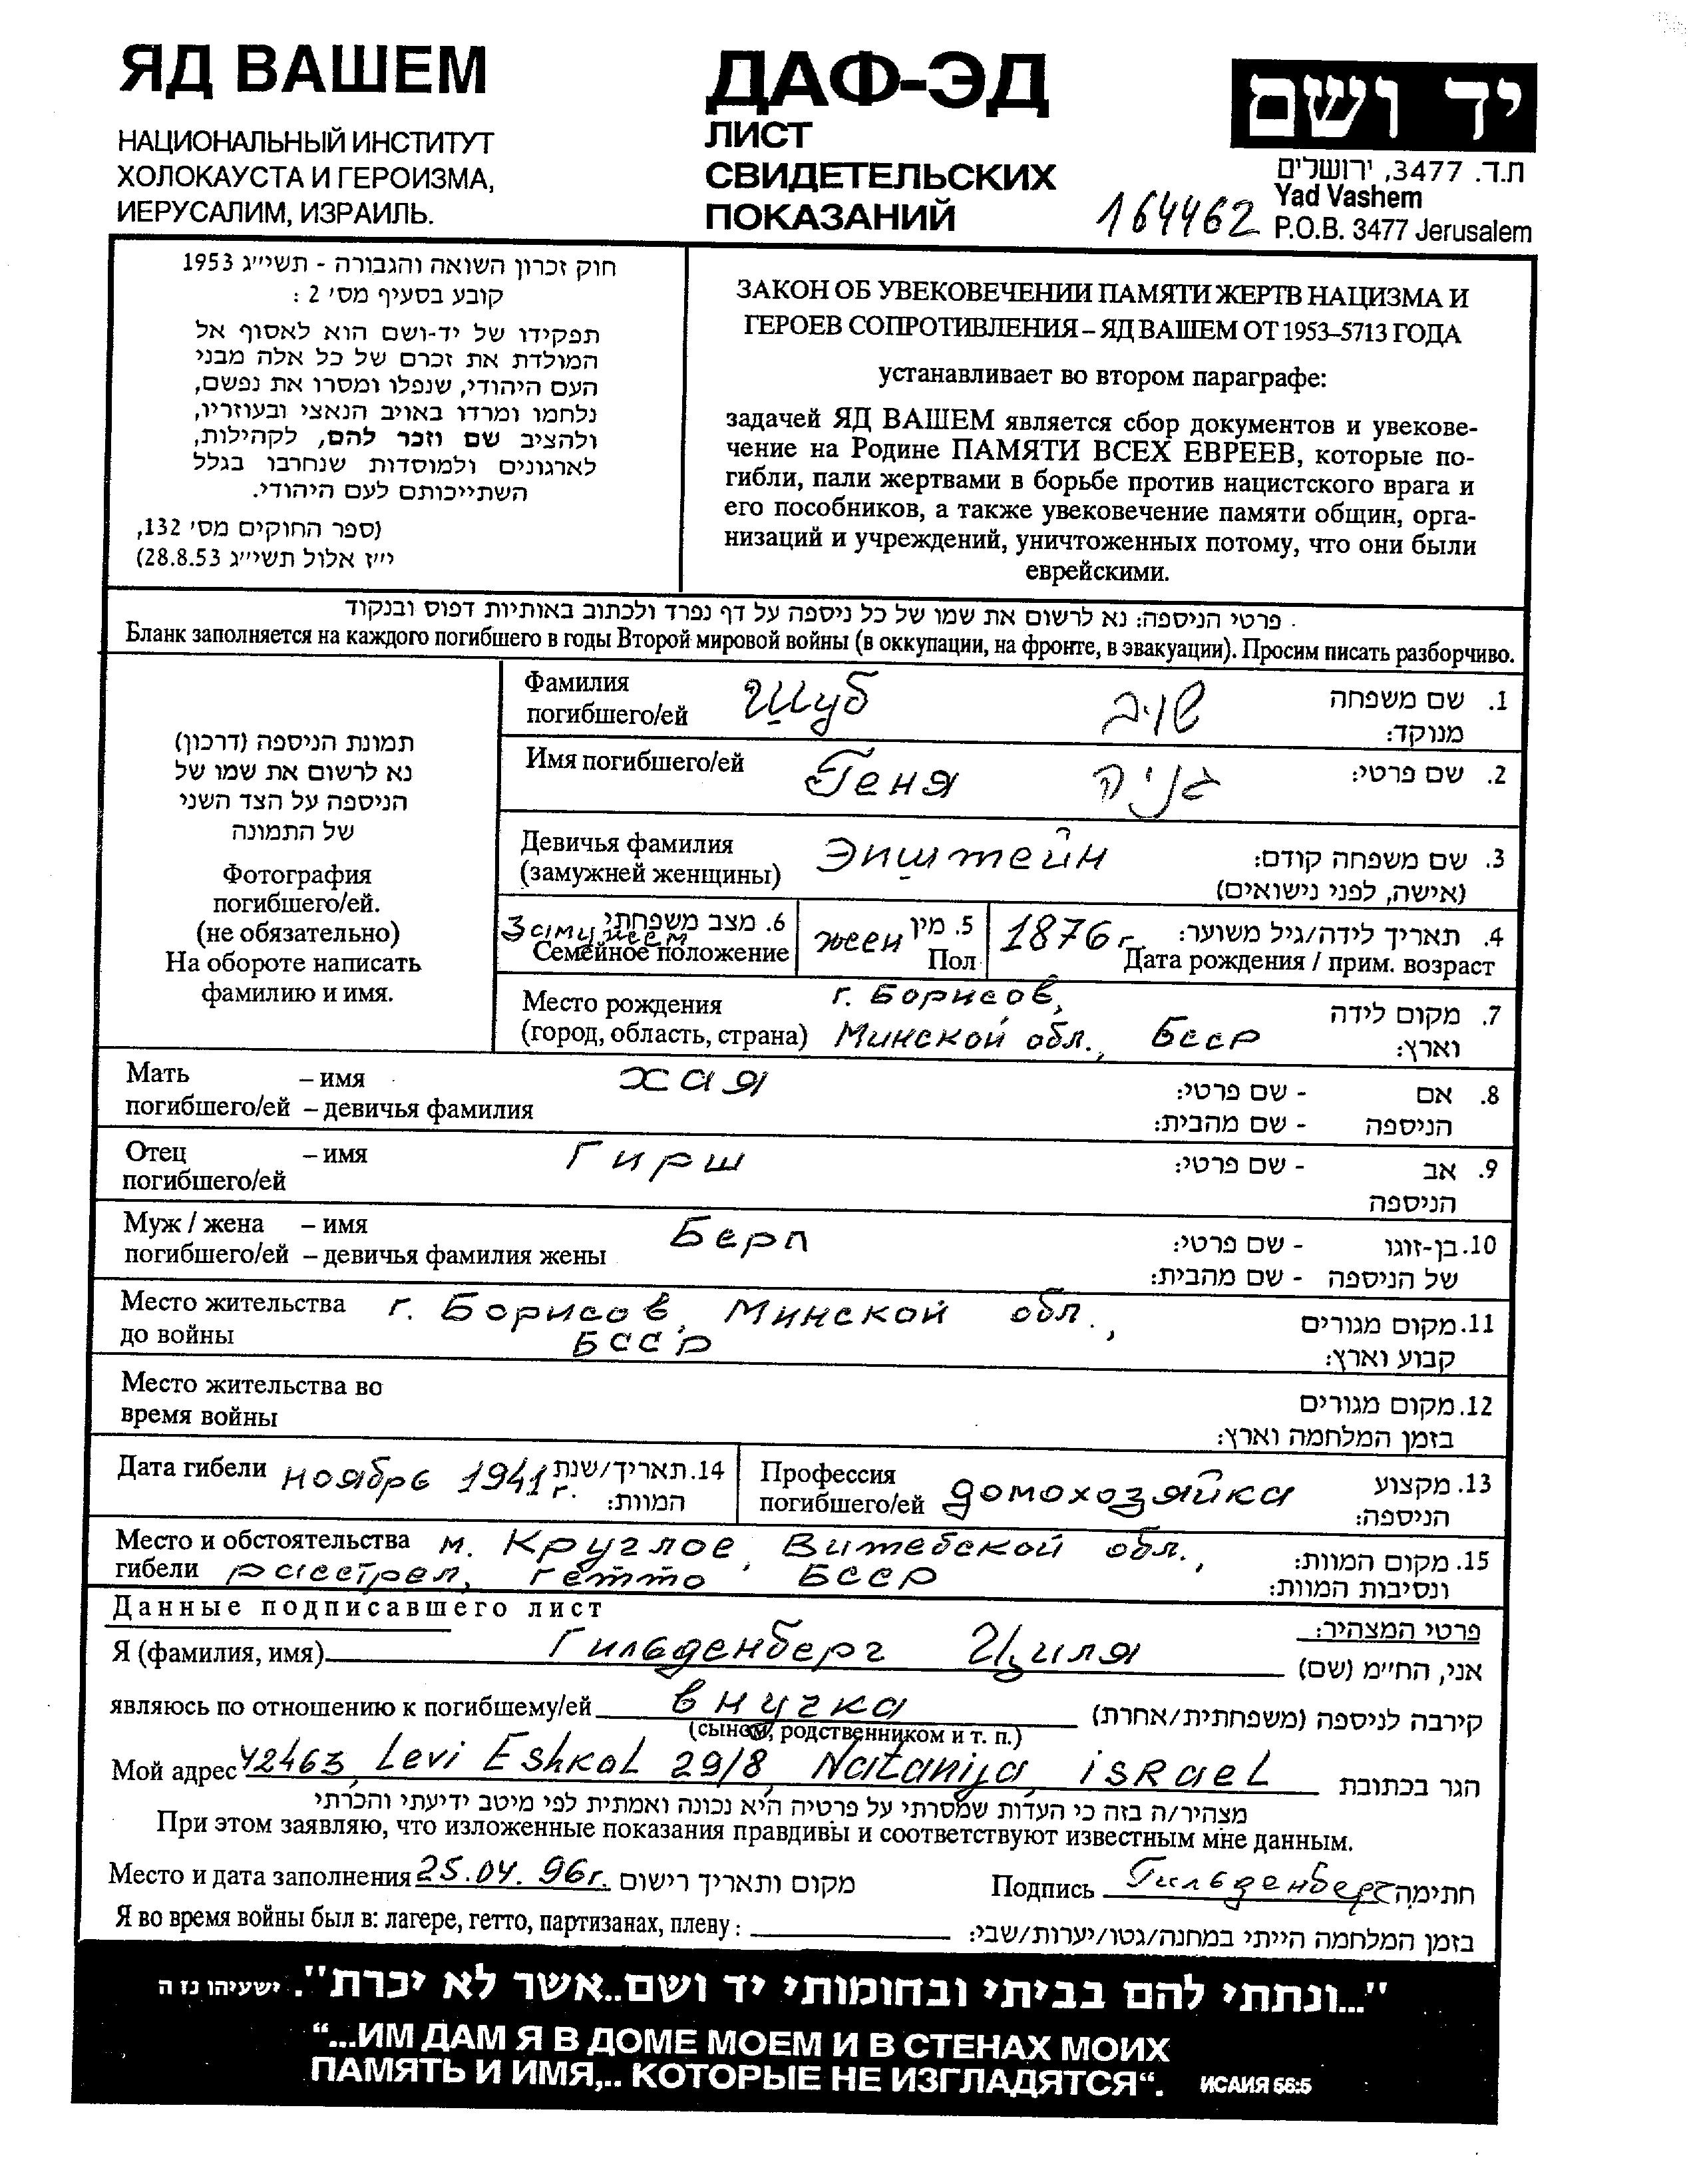 ЯД ВАШЕМ
НАЦИОНАЛЬНЫЙ ИНСТИТУТ
ХОЛОКАУСТА И ГЕРОИЗМА,
ИЕРУСАЛИМ, ИЗРАИЛЬ.
ДАФ-ЭД
ЛИСТ
СВИДЕТЕЛЬСКИХ
ПОКАЗАНИЙ
164462
יד ושם
ת.ד. 3477, ירושלים
Yad Vashem
P.O.B. 3477 Jerusalem
חוק זכרון השואה והגבורה - תשי״ג 1953
קובע בסעיף מס׳ 2 :
תפקידו של יד-ושם הוא לאסוף אל
המולדת את זכרם של כל אלה מבני
העם היהודי, שנפלו ומסרו את נפשם,
נלחמו ומרדו באויב הנאצי ובעוזריו,
ולהציב שם וזכר להם, לקהילות,
לארגונים ולמוסדות שנחרבו בגלל
השתייכותם לעם היהודי.
(ספר החוקים מס׳ 132,
י״ז אלול תשי״ג 28.8.53)
ЗАКОН ОБ УВЕКОВЕЧЕНИИ ПАМЯТИ ЖЕРТВ НАЦИЗМА И
ГЕРОЕВ СОПРОТИВЛЕНИЯ – ЯД ВАШЕМ ОТ 1953–5713 ГОДА
устанавливает во втором параграфе:
задачей ЯД ВАШЕМ является сбор документов и увекове-
чение на Родине ПАМЯТИ ВСЕХ ЕВРЕЕВ, которые по-
гибли, пали жертвами в борьбе против нацистского врага и
его пособников, а также увековечение памяти общин, орга-
низаций и учреждений, уничтоженных потому, что они были
еврейскими.
פרטי הניספה: נא לרשום את שמו של כל ניספה על דף נפרד ולכתוב באותיות דפוס ובנקוד
Бланк заполняется на каждого погибшего в годы Второй мировой войны (в оккупации, на фронте, в эвакуации). Просим писать разборчиво.
תמונת הניספה (דרכון)
נא לרשום את שמו של
הניספה על הצד השני
של התמונה
Фотография
погибшего/ей.
(не обязательно)
На обороте написать
фамилию и имя.
Фамилия
погибшего/ей
Шуб
שויב
1. שם משפחה
מנוקד:
Имя погибшего/ей
Геня
גניה
2. שם פרטי:
Девичья фамилия
(замужней женщины)
Эпштейн
3. שם משפחה קודם:
(אישה, לפני נישואים)
6. מצב משפחתי
Замужем
Семейное положение
5. מין
жен
Пол
4. תאריך לידה/גיל משוער:
1876 г.
Дата рождения / прим. возраст
Место рождения
(город, область, страна)
г. Борисов,
Минской обл., БССР
7. מקום לידה
וארץ:
Мать – имя
погибшего/ей – девичья фамилия
Хая
8. אם - שם פרטי:
הניספה - שם מהבית:
Отец – имя
погибшего/ей
Гирш
9. אב - שם פרטי:
הניספה
Муж / жена – имя
погибшего/ей – девичья фамилия жены
Берл
10. בן-זוגו - שם פרטי:
של הניספה - שם מהבית:
Место жительства
до войны
г. Борисов, Минской обл.,
БССР
11. מקום מגורים
קבוע וארץ:
Место жительства во
время войны
12. מקום מגורים
בזמן המלחמה וארץ:
Дата гибели ноябрь 1941 г.
14. תאריך/שנת
המוות:
Профессия
погибшего/ей домохозяйка
13. מקצוע
הניספה:
Место и обстоятельства м. Круглое, Витебской обл.,
гибели расстрел, гетто БССР
15. מקום המוות:
ונסיבות המוות:
Данные подписавшего лист
פרטי המצהיר:
Я (фамилия, имя) Гильденберг Циля אני, הח״מ (שם)
являюсь по отношению к погибшему/ей внучка קירבה לניספה (משפחתית/אחרת)
(сыном, родственником и т. п.)
Мой адрес 42463, Levi Eshkol 29/8, Natanija, iSRael הגר בכתובת
מצהיר/ה בזה כי העדות שמסרתי על פרטיה היא נכונה ואמתית לפי מיטב ידיעתי והכרתי
При этом заявляю, что изложенные показания правдивы и соответствуют известным мне данным.
Место и дата заполнения 25.04.96г. מקום ותאריך רישום
Подпись Гильденберг חתימה
Я во время войны был в: лагере, гетто, партизанах, плену :
בזמן המלחמה הייתי במחנה/גטו/יערות/שבי:
"...ונתתי להם בביתי ובחומותי יד ושם..אשר לא יכרת". ישעיהו נו ה
“...ИМ ДАМ Я В ДОМЕ МОЕМ И В СТЕНАХ МОИХ
ПАМЯТЬ И ИМЯ,.. КОТОРЫЕ НЕ ИЗГЛАДЯТСЯ“. ИСАИЯ 56:5